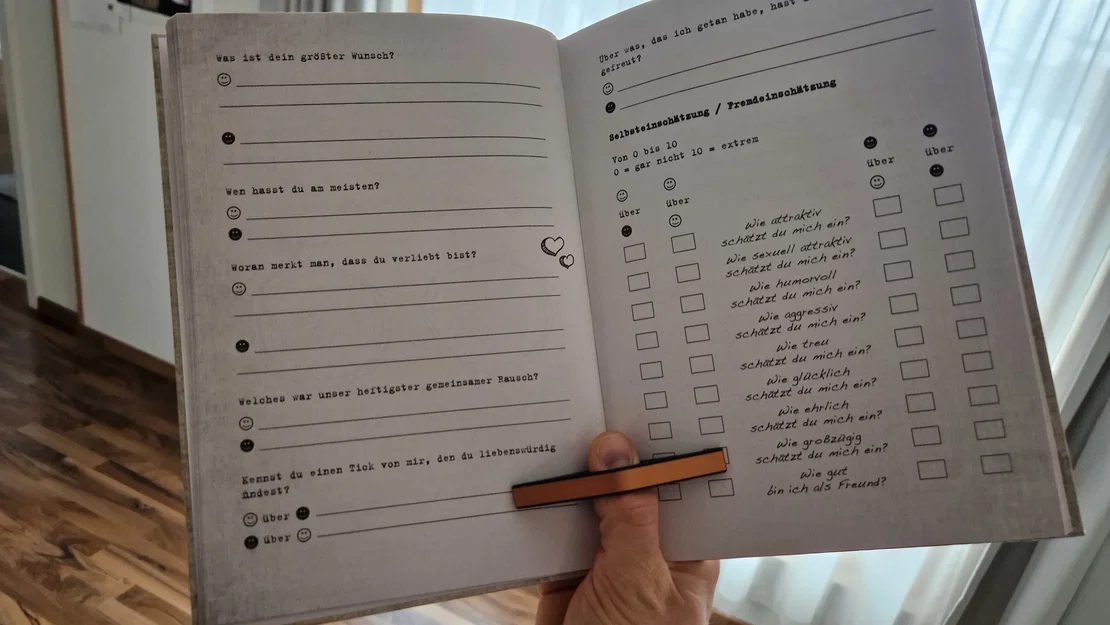 Was ist dein größter Wunsch?
Wen hasst du am meisten?
Woran merkt man, dass du verliebt bist?
Welches war unser heftigster gemeinsamer Rausch?
Kennst du einen Tick von mir, den du liebenswürdig
findest?
über
über
Über was, das ich getan habe, hast
gefreut?
Selbsteinschätzung / Fremdeinschätzung
Von 0 bis 10
0 = gar nicht 10 = extrem
über über über über
Wie attraktiv
schätzt du mich ein?
Wie sexuell attraktiv
schätzt du mich ein?
Wie humorvoll
schätzt du mich ein?
Wie aggressiv
schätzt du mich ein?
Wie treu
schätzt du mich ein?
Wie glücklich
schätzt du mich ein?
Wie ehrlich
schätzt du mich ein?
Wie großzügig
schätzt du mich ein?
Wie gut
bin ich als Freund?